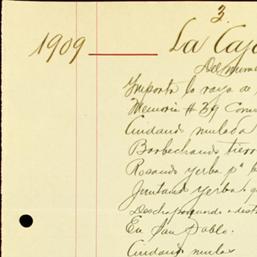 3.
1909 La Caja
Del nume
Importe la raya de
Memoria # 39 Com
Cuidando mulada
Barbechando tierr
Rosando yerba pa
Juntando yerba
Deschaponando
En San Pablo.
Cuidando mulas